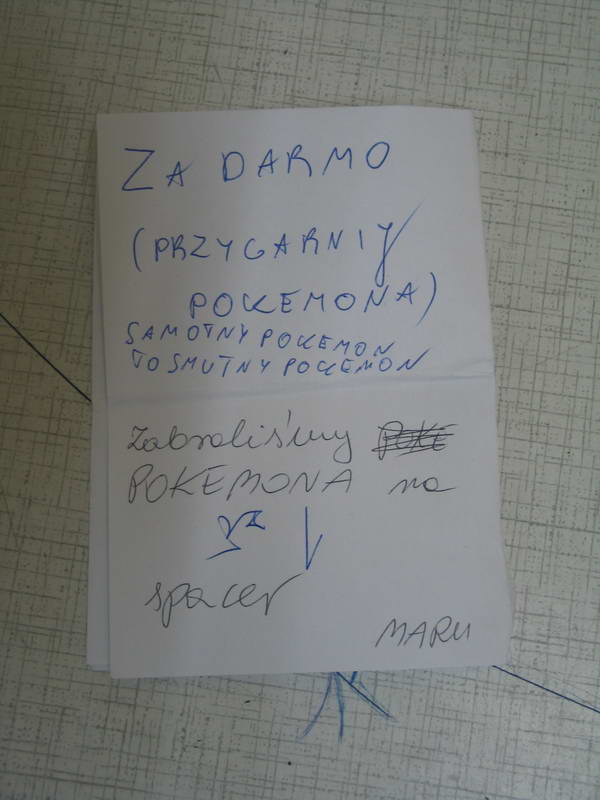 ZA DARMO
(PRZYGARNIJ
POKEMONA)
SAMOTNY POKEMON
TO SMUTNY POKEMON
Zabraliśmy POKE
POKEMONA na
spacer
MARU